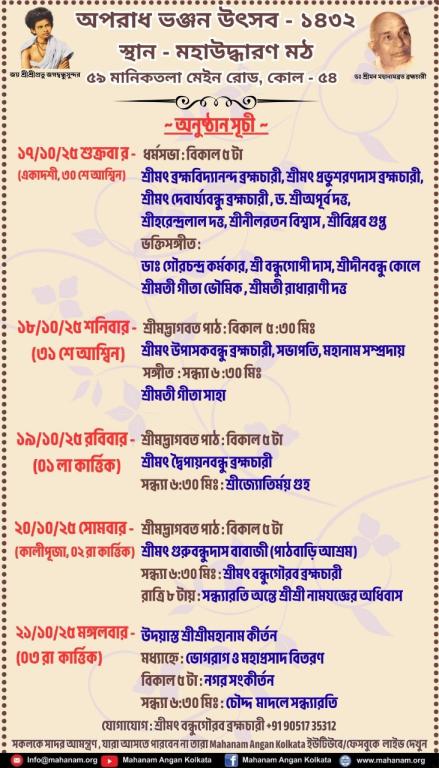 অপরাধ ভঞ্জন উৎসব - ১৪৩২
স্থান - মহাউদ্ধারণ মঠ
৫৯ মানিকতলা মেইন রোড, কোল - ৫৪
জয় শ্রীশ্রীপ্রভু জগদ্বন্ধুসুন্দর
ডঃ শ্রীমন মহানামব্রত ব্রহ্মচারী
~ অনুষ্ঠান সূচী ~
১৭/১০/২৫ শুক্রবার - ধর্মসভা : বিকাল ৫ টা
(একাদশী, ৩০ শে আশ্বিন) শ্রীমৎ ব্রহ্মবিদ্যানন্দ ব্রহ্মচারী, শ্রীমৎ প্রভুশরণদাস ব্রহ্মচারী,
শ্রীমৎ দেবার্ঘ্যবন্ধু ব্রহ্মচারী , ড. শ্রীঅপূর্ব দত্ত,
শ্রীহরেন্দ্রলাল দত্ত, শ্রীনীলরতন বিশ্বাস , শ্রীবিপ্লব গুপ্ত
ভক্তিসঙ্গীত :
ডাঃ গৌরচন্দ্র কর্মকার, শ্রী বন্ধুগোপী দাস, শ্রীদীনবন্ধু কোলে
শ্রীমতী গীতা ভৌমিক , শ্রীমতী রাধারাণী দত্ত
১৮/১০/২৫ শনিবার - শ্রীমদ্ভাগবত পাঠ : বিকাল ৫ :৩০ মিঃ
(৩১ শে আশ্বিন) শ্রীমৎ উপাসকবন্ধু ব্রহ্মচারী, সভাপতি, মহানাম সম্প্রদায়
সঙ্গীত : সন্ধ্যা ৬ :৩০ মিঃ
শ্রীমতী গীতা সাহা
১৯/১০/২৫ রবিবার - শ্রীমদ্ভাগবত পাঠ : বিকাল ৫ টা
(০১ লা কার্ত্তিক) শ্রীমৎ দ্বৈপায়নবন্ধু ব্রহ্মচারী
সন্ধ্যা ৬:৩০ মিঃ : শ্রীজ্যোতির্ময় গুহ
২০/১০/২৫ সোমবার - শ্রীমদ্ভাগবত পাঠ : বিকাল ৫ টা
(কালীপূজা, ০২ রা কার্ত্তিক) শ্রীমৎ গুরুবন্ধুদাস বাবাজী (পাঠবাড়ি আশ্রম)
সন্ধ্যা ৬:৩০ মিঃ : শ্রীমৎ বন্ধুগৌরব ব্রহ্মচারী
রাত্রি ৮ টায় : সন্ধ্যারতি অন্তে শ্রীশ্রী নামযজ্ঞের অধিবাস
২১/১০/২৫ মঙ্গলবার - উদয়াস্ত শ্রীশ্রীমহানাম কীর্তন
(০৩ রা কার্ত্তিক) মধ্যাহ্নে : ভোগরাগ ও মহাপ্রসাদ বিতরণ
বিকাল ৫ টা : নগর সংকীর্তন
সন্ধ্যা ৬:৩০ মিঃ : চৌদ্দ মাদলে সন্ধ্যারতি
যোগাযোগ : শ্রীমৎ বন্ধুগৌরব ব্রহ্মচারী +91 90517 35312
সকলকে সাদর আমন্ত্রণ , যারা আসতে পারবেন না তারা Mahanam Angan Kolkata ইউটিউবে/ফেসবুকে লাইভ দেখুন
Info@mahanam.org Mahanam Angan Kolkata Mahanam Angan Kolkata www.mahanam.org